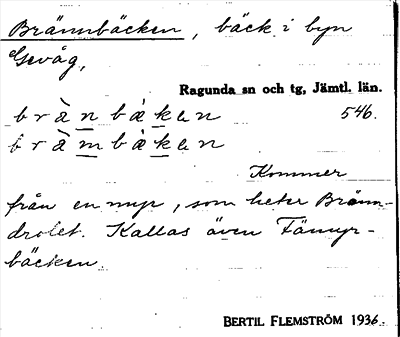 Brännbäcken, bäck i byn
Gevåg,
Ragunda sn och tg, Jämtl. län.
brànbàkan 546.
bràmbàkan
Kommer
från en myr, som heter Bränn-
drolet. Kallas även Fämyr-
bäcken.
BERTIL FLEMSTRÖM 1936.